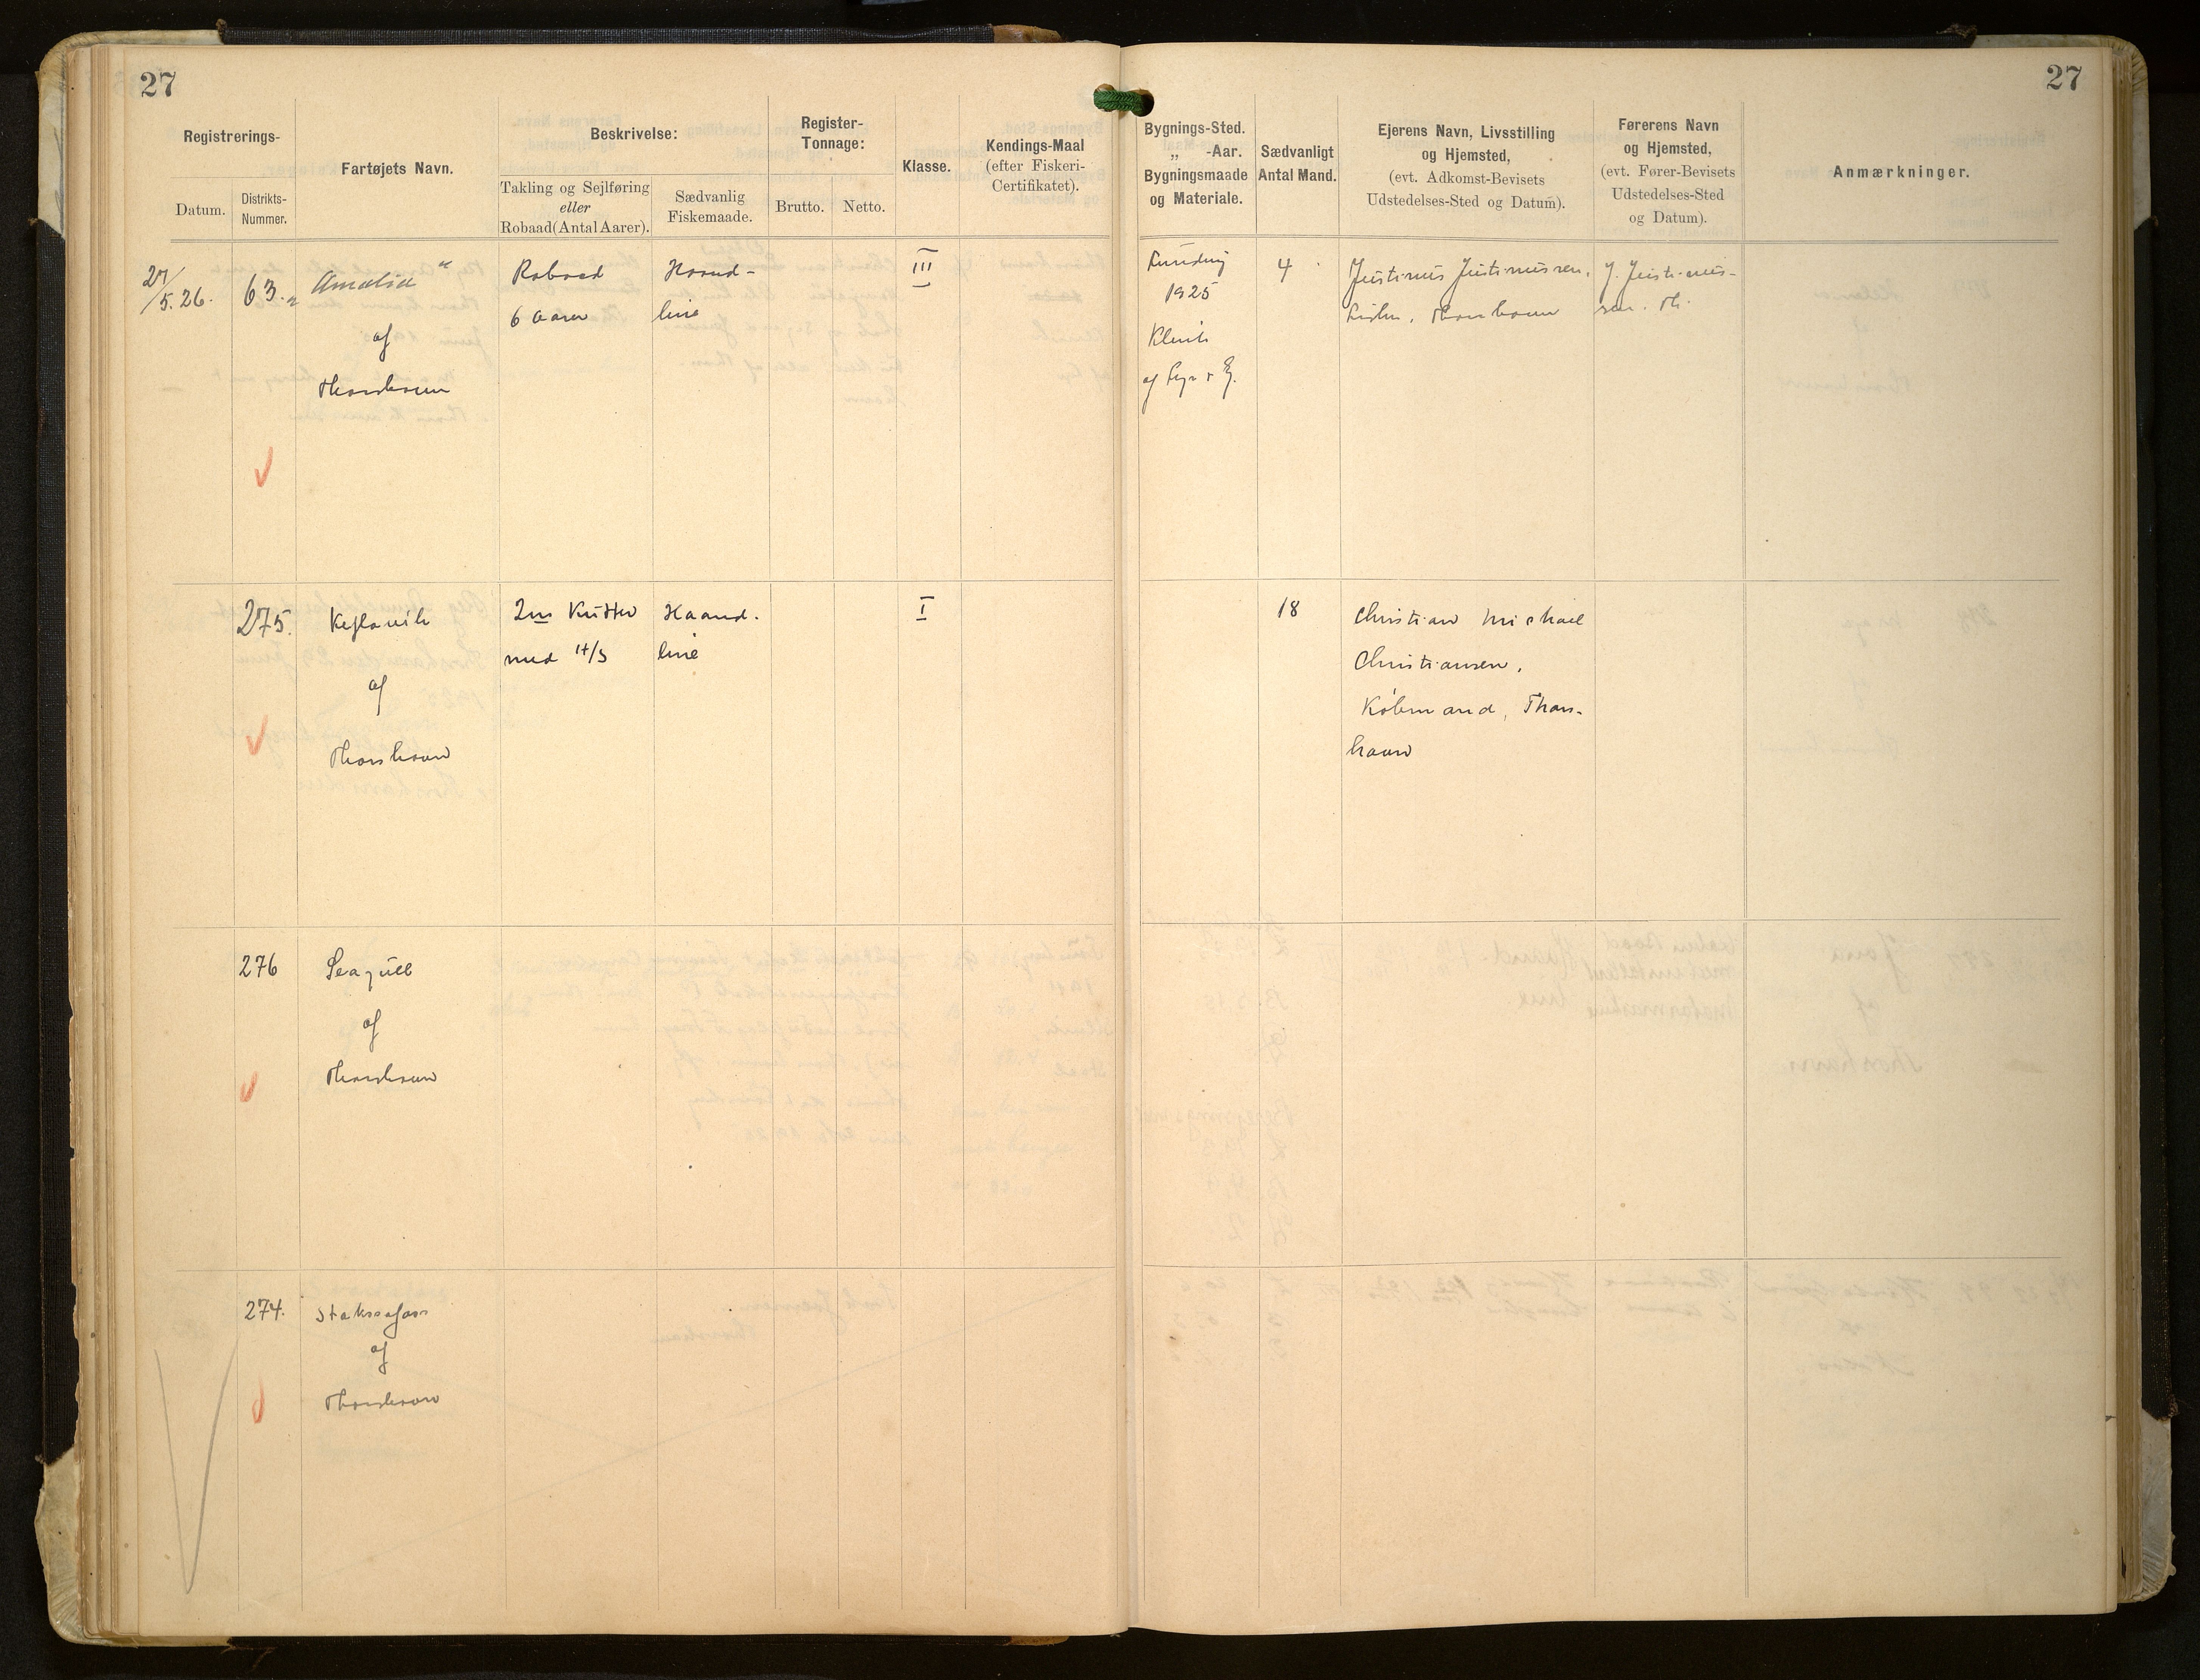 27
27
Registrerings-
Datum.
Distrikts-
Nummer.
Fartøjets Navn.
Beskrivelse:
Takling og Sejlføring
eller
Robaad (Antal Aarer).
Sædvanlig
Fiskemaade.
Register-
Tonnage:
Brutto.
Netto.
Klasse.
Kendings-Maal
(efter Fiskeri-
Certifikatet).
Bygnings-Sted.
„ -Aar.
Bygningsmaade
og Materiale.
Sædvanligt
Antal Mand.
Ejerens Navn, Livsstilling
og Hjemsted,
(evt. Adkomst-Bevisets
Udstedelses-Sted og Datum).
Førerens Navn
og Hjemsted,
(evt. Fører-Bevisets
Udstedelses-Sted
og Datum).
Anmærkninger.
27/5.26.
63.
Amalia"
af
Thorshavn
Robaad
6 Aarer
Haand-
line
III
Funding
1925
Klink
af Fyr & Eg.
4
Justinus Justinussen,
Fisker, Thorshavn
J. Justinus-
sen. Th.
275.
Keflavik
af
Thorshavn
2m Kutter
med
Haand-
line
I
18
Christian Michael
Christiansen,
Købmand, Thors-
havn
276
Seagull
af
Thorshavn
274.
af
Thorshavn